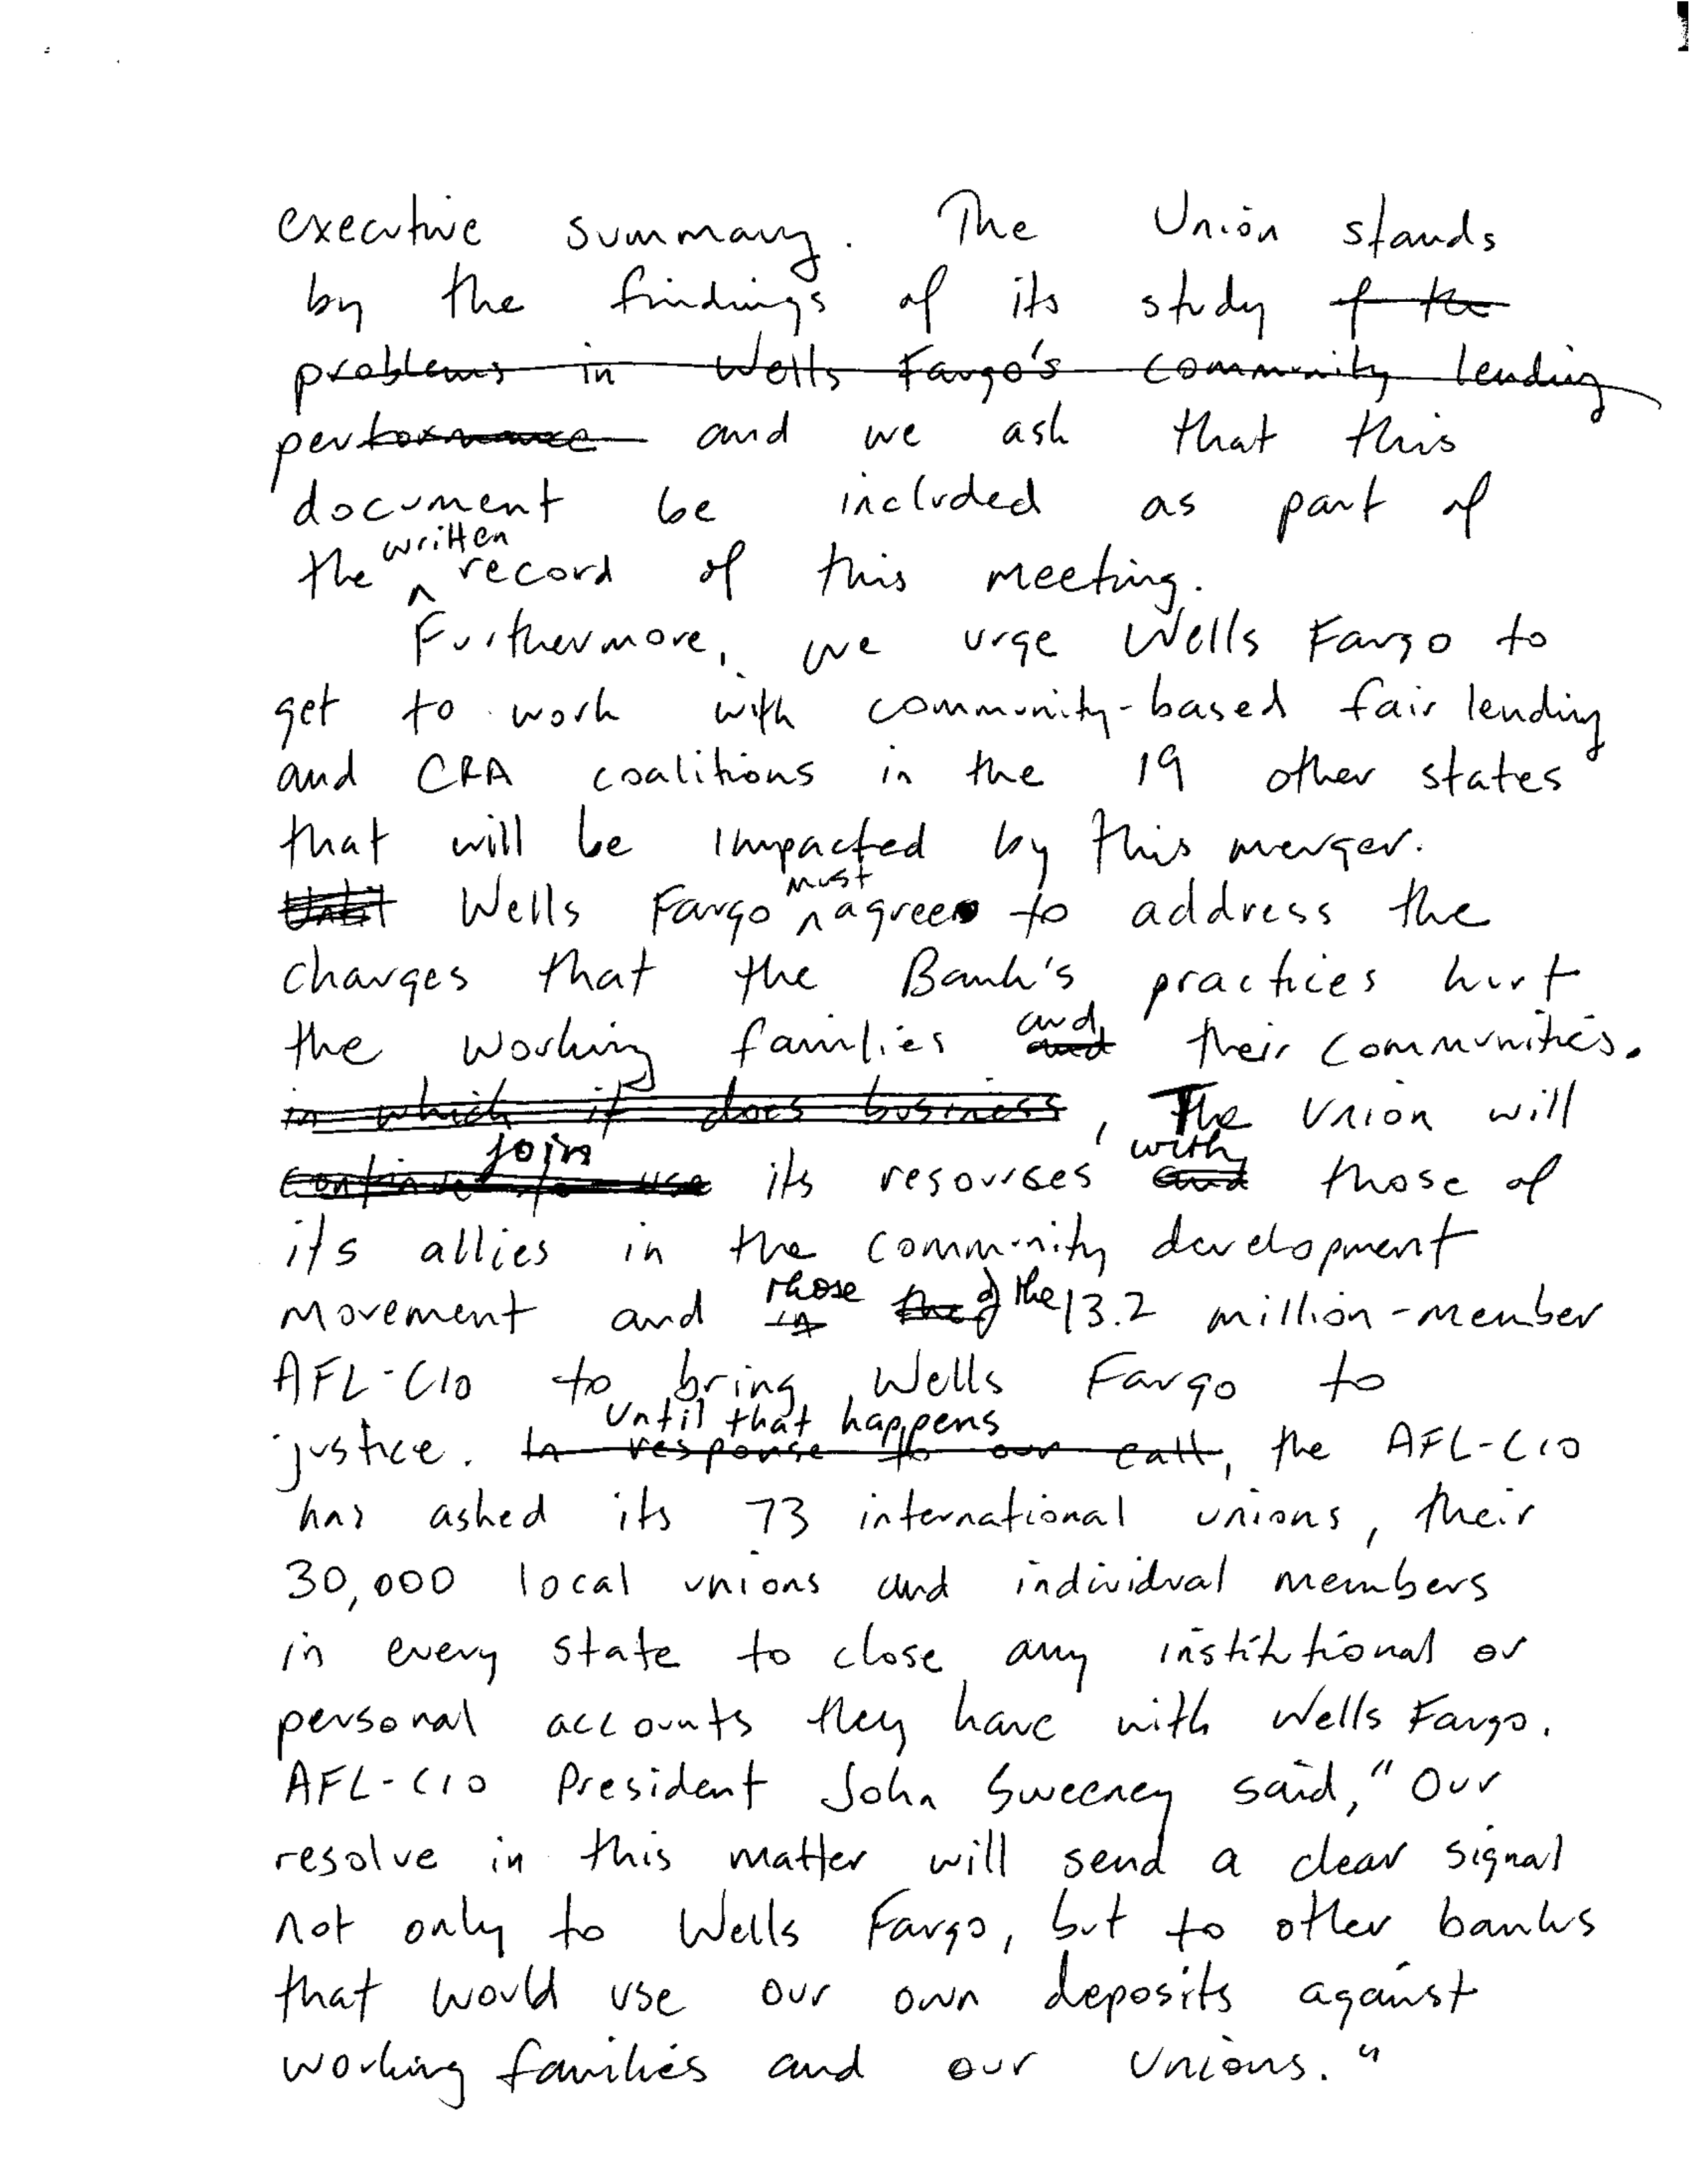 executive summary. The Union stands
by the findings of its study of the
problems in Wells Fargo's community lending
performance and we ask that this
document be included as part of
written
the ^ record of this meeting.
Furthermore, we urge Wells Fargo to
get to work with community-based fair lending
and CRA coalitions in the 19 other states
that will be impacted by this merger.
must
Until Wells Fargo ^ agree to address the
charges that the Bank's practices hurt
and
the working families and their communities.
in which it does business, The Union will
join with
continue to use its resourses and those of
its allies in the community development
those of the
movement and in the 13.2 million-member
AFL-CIO to bring Wells Fargo to
Until that happens
justice. In response to our call, the AFL-CIO
has asked its 73 international unions, their
30,000 local unions and individual members
in every state to close any institutional or
personal accounts they have with Wells Fargo.
AFL-CIO President John Sweeney said, "Our
resolve in this matter will send a clear signal
not only to Wells Fargo, but to other banks
that would use our own deposits against
working families and our unions."